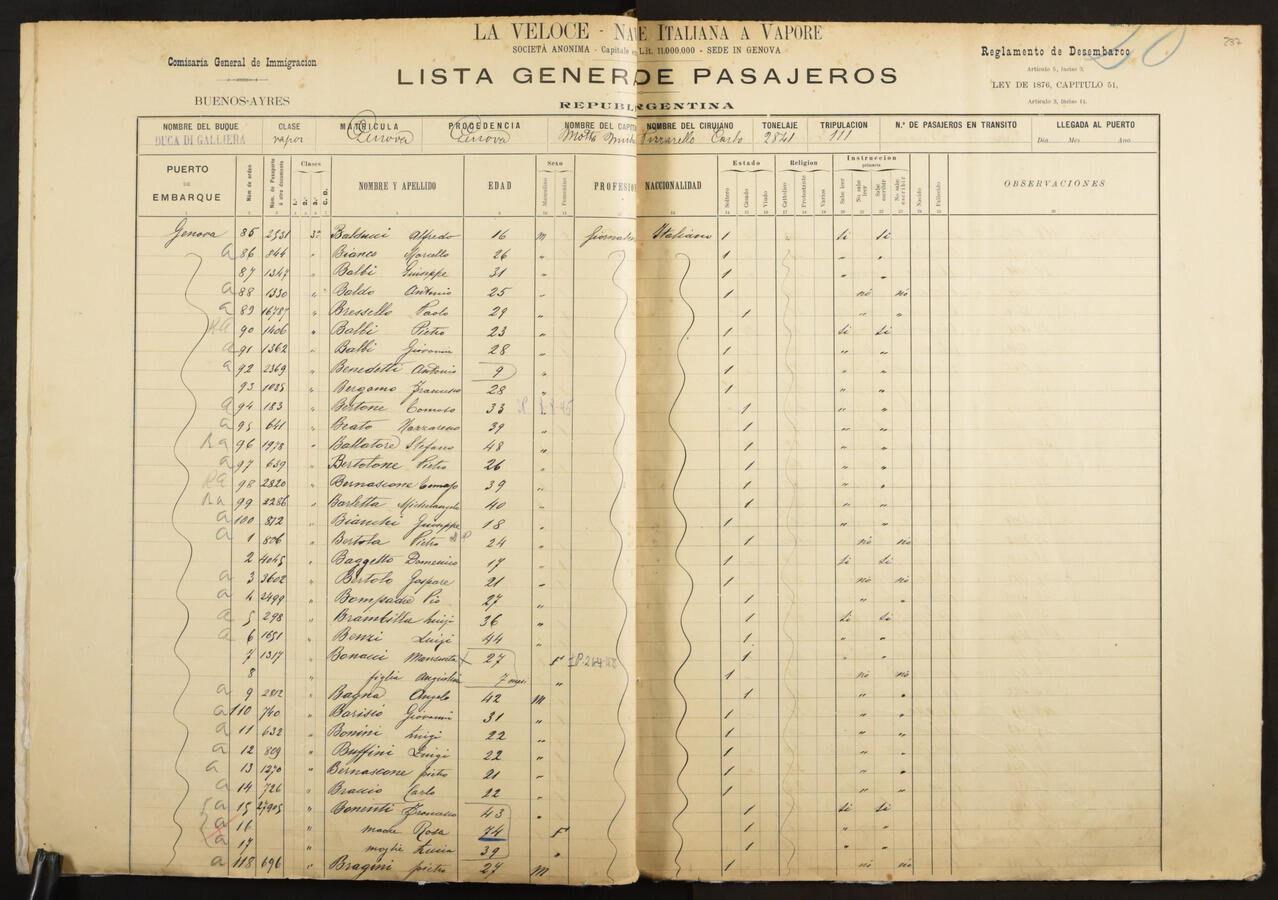 LA VELOCE - NA E ITALIANA A VAPORE
SOCIETÀ ANONIMA - Capitale Lit. 11.000.000 - SEDE IN GENOVA
Comisaria General de Immigracion
BUENOS-AYRES
LISTA GENER DE PASAJEROS
REPUBL RGENTINA
Reglamento de Desembarco
Articulo 5, Inciso 3.
LEY DE 1876, CAPITULO 51,
Articulo 3, Inciso 11.
20
287
NOMBRE DEL BUQUE CLASE MATRICULA PROCEDENCIA NOMBRE DEL CAPIT NOMBRE DEL CIRUJANO TONELAJE TRIPULACION N.º DE PASAJEROS EN TRANSITO LLEGADA AL PUERTO
DUCA DI GALLIERA vapor Genova Genova Carlo 2841 111 Dia Mes Ano
PUERTO DE EMBARQUE Núm de orden Núm. de Pasaporte ú otro documento Clases 1.ª 2.ª 3.ª NOMBRE Y APELLIDO EDAD Sexo Masculino Femenino PROFESION NACCIONALIDAD Estado Soltero Casado Viudo Religion Catholico Protestante Varios Instruccion primaria Sabe leer No sabe leer Sabe escribir No sabe escribir Nacido Fallecido OBSERVACIONES
Genova 85 2531 3ª Balducci Alfredo 16 m Giornal Italiano 1 si si
a 86 844 " Bianco Marcello 26 " 1 " "
87 1347 " Balbi Giuseppe 31 " 1 " "
a 88 1330 " Baldo Antonio 25 " 1 no no
a 89 16787 " Bressello Paolo 29 " 1 " "
Ra 90 1406 " Balbi Pietro 23 " 1 si si
a 91 1362 " Balbi Giovanni 28 " 1 " "
a 92 2369 " Benedetti Antonio 9 " 1 " "
93 1035 " Bergamo Francesco 28 " 1 " "
a 94 183 " Bertone Tomaso 33 " 1 " "
a 95 641 " Brato Nazzareno 39 " 1 " "
Ra 96 1978 " Ballatore Stefano 48 " 1 " "
a 97 639 " Bertolone Pietro 26 " 1 " "
Ra 98 2820 " Bernascone Tomaso 39 " 1 " "
Ra 99 2286 " Barletta Michelangelo 40 " 1 " "
a 100 812 " Bianchi Giuseppe 18 " 1 " "
a 1 806 " Bertola Pietro 24 " 1 no no
2 4045 " Baggetto Domenico 17 " 1 si si
a 3 3602 " Bertolo Gaspare 21 " 1 no no
a 4 2499 " Bompadre Pio 27 " 1 " "
a 5 298 " Brambilla Luigi 36 " 1 si si
a 6 1651 " Benzi Luigi 44 " 1 " "
7 1317 " Bonacci 27 F 1 " "
8 " figlia 7 mesi " 1 no no
a 9 2812 " Bagna Angelo 42 M 1 " "
a 110 740 " Barisio Giovanni 31 " 1 " "
a 11 632 " Bonini Luigi 22 " 1 " "
a 12 809 " Buffini Luigi 22 " 1 " "
a 13 1270 " Bernascone pietro 21 " 1 " "
a 14 726 " Braccio Carlo 22 " 1 " "
a 15 27905 " Bonenti Francesco 43 " 1 si si
a 16 " madre Rosa 74 F 1 " "
a 17 " moglie Lucia 39 " 1 " "
a 118 696 " Bragini pietro 27 M 1 no no